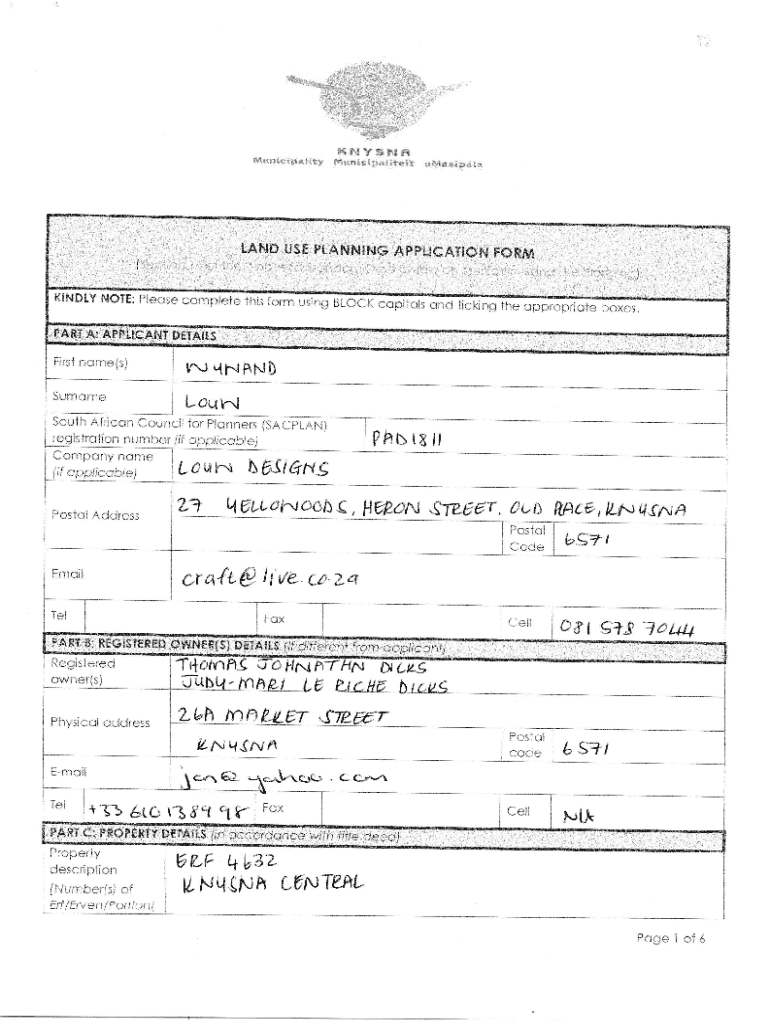 KNYSNA
Municipality Munisipaliteit uMasipala
LAND USE PLANNING APPLICATION FORM
KINDLY NOTE: Please complete this form using BLOCK capitals and ticking the appropriate boxes.
PART A: APPLICANT DETAILS
First name(s) WYNAND
Surname LOUW
South African Council for Planners (SACPLAN)
registration number (if applicable) PAD1811
Company name
(if applicable) LOUW DESIGNS
Postal Address 27 YELLOWOODS, HERON STREET, OLD PLACE, KNYSNA
Postal
Code 6571
Email craft@live.co.za
Tel Fax Cell 081 578 7044
PART B: REGISTERED OWNER(S) DETAILS (if different from applicant)
Registered THOMAS JOHNATHN DICKS
owner(s) JUDY-MARI LE RICHE DICKS
Physical address 26A MARKET STREET
KNYSNA
Postal
code 6571
E-mail jan@yahoo.com
Tel +33 610 1389 98 Fax Cell N/A
PART C: PROPERTY DETAILS (in accordance with title deed)
Property
description ERF 4632
(Number(s) of KNYSNA CENTRAL
Erf/Erven/Portion(
Page 1 of 6